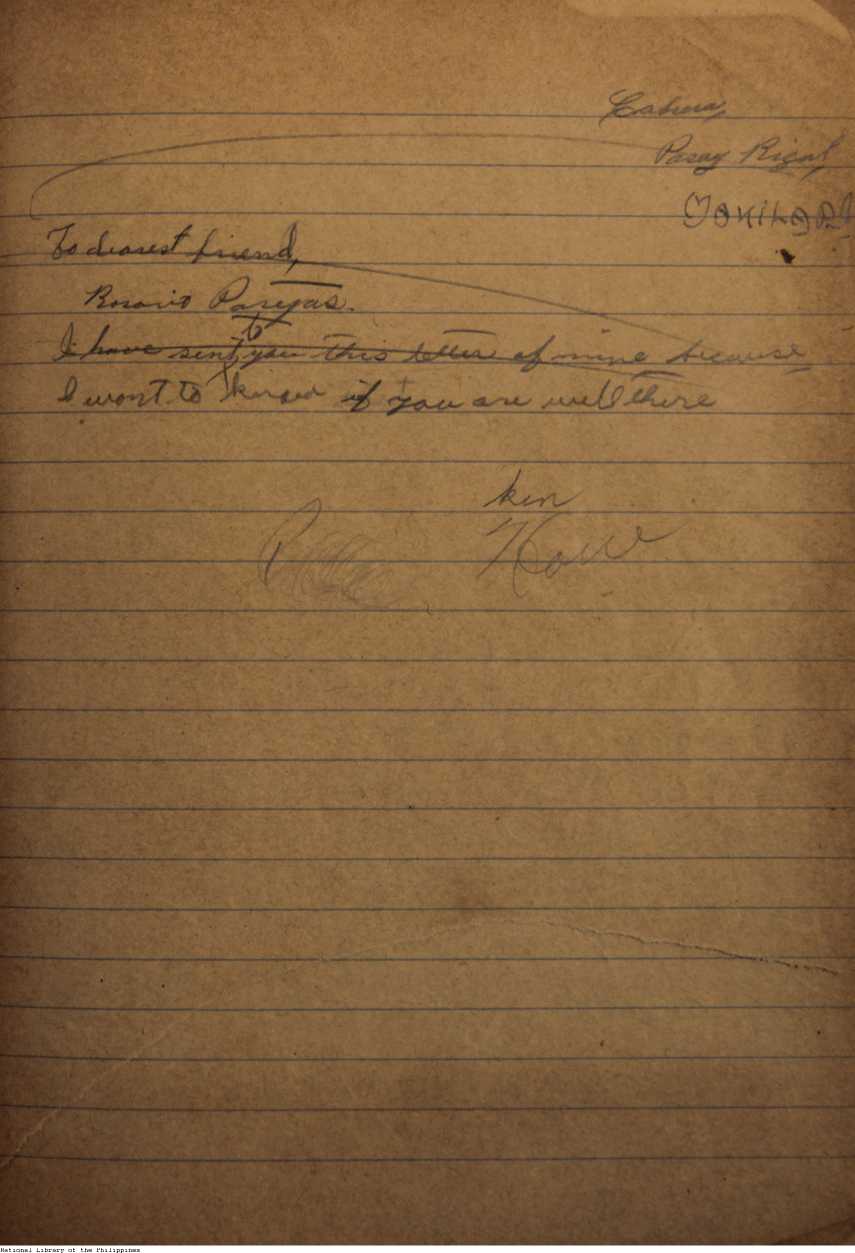 Cabrera,
Pasay Rizal,
To dearest friend,
Rosario Pareyas.
to
I have sent you this letter of mine because
I wont to know if you are well there
ken
National Library of the Philippines